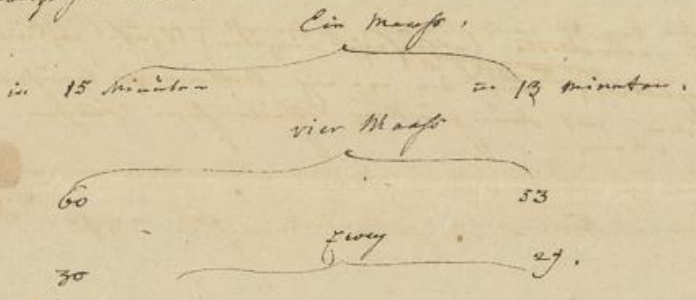 Ein Maass.
in 15 Minuten in 13 minuten.
vier Maass
60 53
Zwey
30 27.